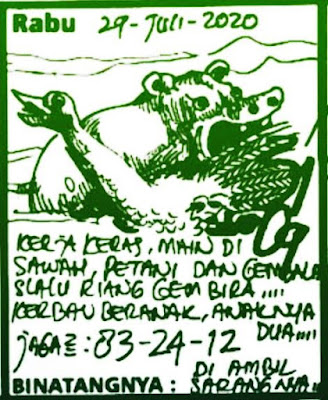 Rabu 29-JULI-2020
09
KERJA KERAS, MAIN DI
SAWAH, PETANI DAN GEMBALA
SLALU RIANG GEMBIRA....
KERBAU BERANAK, ANAKNYA
DUA....
JAGA2: 83-24-12
DI AMBIL
BINATANGNYA : SARANGNYA!!